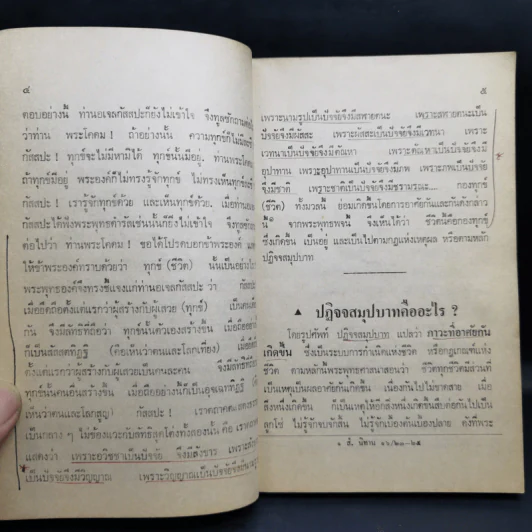 ๔
ตอบอย่างนี้ ท่านอเจลกัสสปะก็ยังไม่เข้าใจ จึงทูลซักถามต่อไป
ว่าท่าน พระโคดม ! ถ้าอย่างนั้น ความทุกข์ก็ไม่มี
กัสสปะ ! ทุกข์จะไม่มีหามิได้ ทุกข์นั้นมีอยู่. ท่านพระโคดม
ถ้าทุกข์มีอยู่ พระองค์ก็ไม่ทรงรู้จักทุกข์ ไม่ทรงเห็นทุกข์
กัสสปะ ! เรารู้จักทุกข์ด้วย และเห็นทุกข์ด้วย. เมื่อท่าน
กัสสปะได้ฟังพระพุทธดำรัสเช่นนั้นก็ยังไม่เข้าใจ จึงทูล
ต่อไปว่า ท่านพระโคดม ! ขอได้โปรดบอกข้าพระองค์ และ
ให้ข้าพระองค์ทราบด้วยว่า ทุกข์ (ชีวิต) นั้นเป็นอย่างไร
พระพุทธองค์จึงทรงชี้แจงแก่ท่านอเจลกัสสปะ ว่า กัสสปะ
เมื่อยึดถือตั้งแต่แรกว่าผู้สร้างกับผู้เสวย (ทุกข์) เป็นคน
กัน จึงมีลัทธิที่ถือว่า ทุกข์นั้นตัวเองสร้างขึ้น เมื่อถือ
ก็เป็นสัสสตทิฏฐิ (คือเห็นว่าตนและโลกเที่ยง) เมื่อ
ตั้งแต่แรกว่าผู้สร้างกับผู้เสวยเป็นคนละคน จึงมีลัทธิ
ทุกข์นั้นคนอื่นสร้างขึ้น เมื่อถืออย่างนี้ก็เป็นอุจเฉททิฏฐิ
เห็นว่าตนและโลกสูญ) กัสสปะ ! เราตถาคต
เป็นกลาง ๆ ไม่ข้องแวะกับลัทธิสุดโต่งทั้งสองนั้น คือ เรา
แสดงว่า เพราะอวิชชาเป็นปัจจัย จึงมีสังขาร เพราะสังขาร
เป็นปัจจัยจึงมีวิญญาณ เพราะวิญญาณเป็นปัจจัยจึง
๕
เพราะนามรูปเป็นปัจจัยจึงมีสฬายตนะ เพราะสฬายตนะเป็น
ปัจจัยจึงมีผัสสะ เพราะผัสสะเป็นปัจจัยจึงมีเวทนา เพราะ
เวทนาเป็นปัจจัยจึงมีตัณหา เพราะตัณหาเป็นปัจจัยจึงมี
อุปาทาน เพราะอุปาทานเป็นปัจจัยจึงมีภพ เพราะภพเป็นปัจจัย
จึงมีชาติ เพราะชาติเป็นปัจจัยจึงมีชรามรณะ.... กองทุกข์
(ชีวิต) ทั้งมวลนี้ ย่อมเกิดขึ้นโดยการอาศัยกันและกันดังกล่าว
นี้๑ จากพระพุทธพจน์นี้ จึงเห็นได้ว่า ชีวิตนี้คือกองทุกข์
ซึ่งเกิดขึ้น เป็นอยู่ และเป็นไปตามกฎแห่งเหตุผล หรือตามหลัก
ปฏิจจสมุปบาท
▲ ปฏิจจสมุปบาทคืออะไร ?
โดยรูปศัพท์ ปฏิจจสมุปบาท แปลว่า ภาวะที่อาศัยกัน
เกิดขึ้น ซึ่งเป็นระบบการกำเนิดแห่งชีวิต หรือกฎเกณฑ์แห่ง
ชีวิต ตามหลักที่พระพุทธศาสนาสอนว่า ชีวิตทุกชีวิตมีส่วนที่
เป็นเหตุเป็นผลอาศัยกันเกิดขึ้น เนื่องกันไปไม่ขาดสาย เมื่อ
สิ่งหนึ่งเกิดขึ้น ก็เป็นเหตุให้อีกสิ่งหนึ่งเกิดขึ้นสืบต่อกันไปเป็น
ลูกโซ่ ไม่รู้จักจบจักสิ้น ไม่รู้จักเบื้องต้นเบื้องปลาย ดังที่พระ
๑ สํ. นิทาน ๑๖/๒๓-๒๕